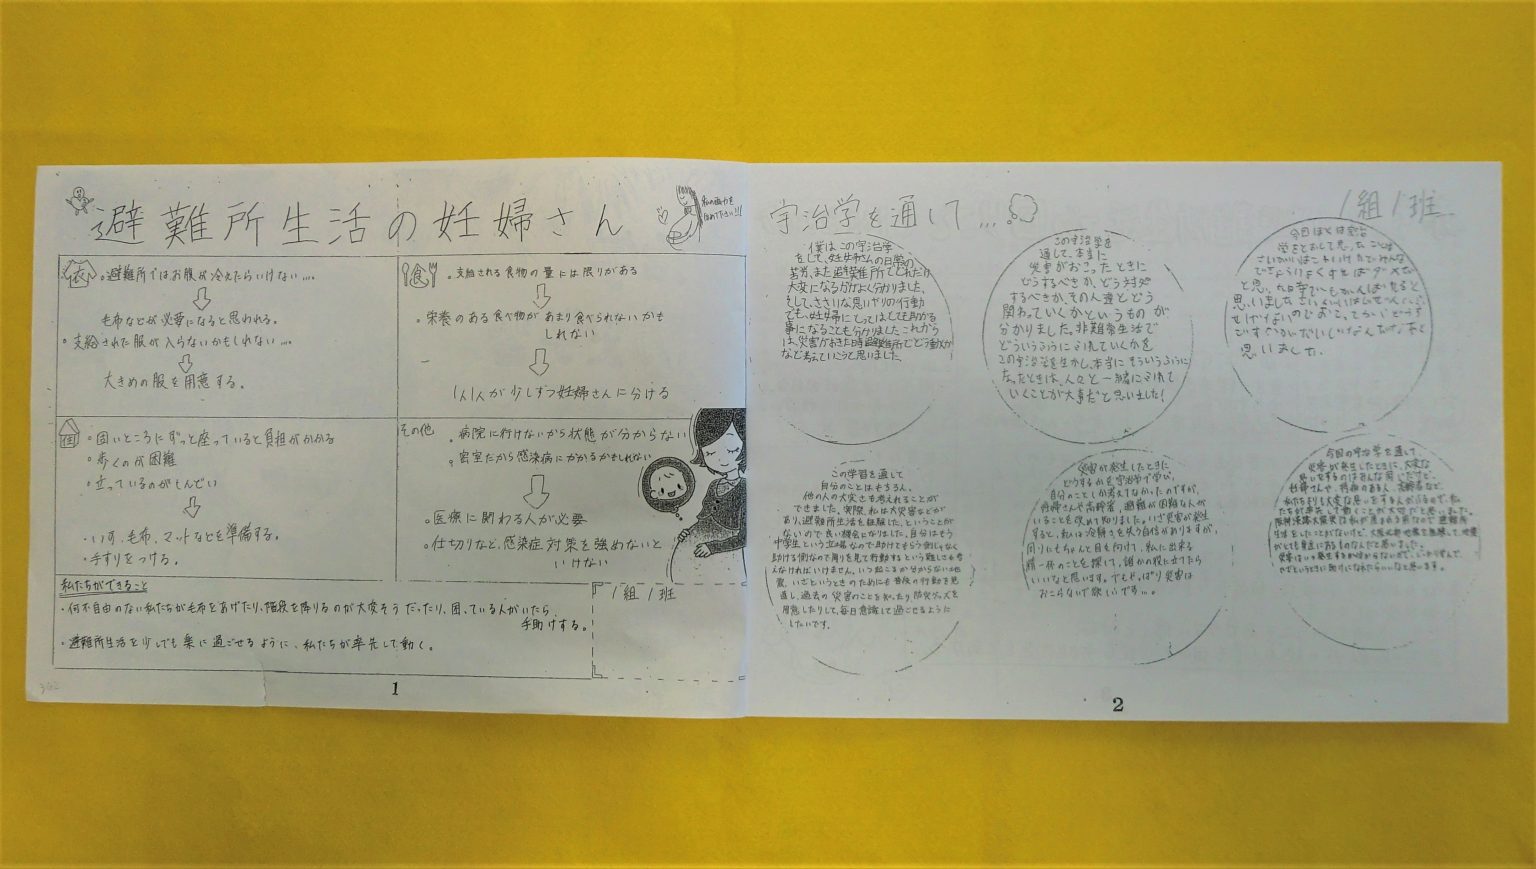 避難所生活の妊婦さん
衣
。避難所ではお腹が冷えたらいけない….
毛布などが必要になると思われる。
。支給された服が入らないかもしれない….
大きめの服を用意する。
食
。支給される食物の量には限りがある
。栄養のある食べ物があまり食べられないかも
しれない
1人1人が少しずつ妊婦さんに分ける
住
。固いところにずっと座っていると負担がかかる
。歩くのが困難
。立っているのがしんどい
・いす、毛布、マットなどを準備する。
・手すりをつける。
その他
。病院に行けないから状態が分からない
。密室だから感染病にかかるかもしれない
。医療に関わる人が必要
。仕切りなど、感染症対策を強めないと
いけない
私たちができること
・何不自由のない私たちが毛布をあげたり、階段を降りるのが大変そうだったり、困っている人がいたら、
手助けする。
・避難所生活を少しでも楽に過ごせるように、私たちが率先して動く。
1組1班
1
宇治学を通して…
1組1班
僕はこの宇治学
をして、妊婦さんの日常の
苦労、また避難所でどれだけ
大変になるかがよく分かりました。
そして、ささいな思いやりの行動
でも、妊婦にとってはとても助かる
事になることも分かりました。これから
は、災害がおきた時避難所でどう動くか
など考えていこうと思いました。
この宇治学を
通して、本当に
災害がおこったときに
どうするべきか、どう対処
するべきか、その人達とどう
関わっていくかというものが
分かりました。非難常生活で
どういうふうに
この宇治学を生かし、本当にそういうふうに
なったときは、人々と一緒に
いくことが大事だと思いました!
今回ぼくは宇治
学をとおして思ったことは
と思
思いました
思いました。
この学習を通して
自分のことはもちろん、
他の人の大変さも考えれることが
できました。実際、私は大災害などが
あり、避難所生活を経験した、ということが
ないので良い機会になりました。自分はもう
中学生という立場なので助けてもらう側じゃなく
助ける側なので周りを見て行動するという難しさも考
えなければいけません。いつ起こるか分からない地
震、いざというときのためにも普段の行動を見
直し、過去の災害のことを知ったり防災グッズを
用意したりして、毎日意識して過ごせるように
したいです。
災害が発生したときに
どうするかを宇治学で学び、
自分のことしか考えてなかったのですが、
妊婦さんや高齢者、避難が困難な人が
いることを改めて知りました。いざ災害が発生
すると、私は冷静さを失う自信がありますが、
周りにもちゃんと目を向けて、私に出来る
精一杯のことを探して、誰かの役に立てたら
いいなと思います。でもやっぱり災害は
おこらないで欲しいです…。
今回の宇治学を通して
災害が発生したときに、大変な
思いをするのはみんな同じだけど、
妊婦さんや、持病のある人、高齢者など、
私たちよりも大変な思いをする人がいるので、私
たちが率先して動くことが大切だと思いました。
阪神淡路大震災は私が産まれる前なので避難所
生活をしたことがないけど、大阪北部地震を経験して、地震
がとても身近にあるものなんだと思いました。
2